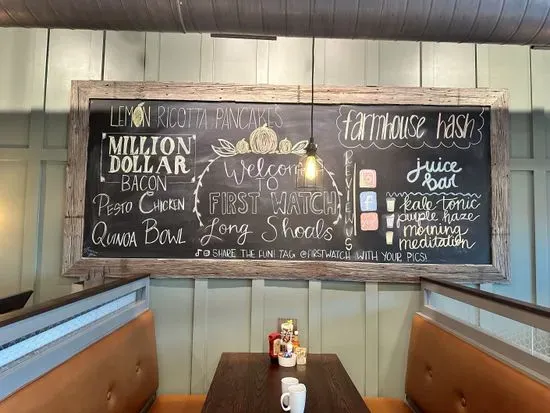 LEMON RICOTTA PANCAKES
MILLION
DOLLAR
BACON
PESTO CHICKEN
QUINOA BOWL
Welcome
TO
FIRST WATCH
Long Shoals
REVIEWS
farmhouse hash
juice
bar
kale tonic
purple haze
morning
meditation
SHARE THE FUN! TAG @FIRSTWATCH WITH YOUR PICS!